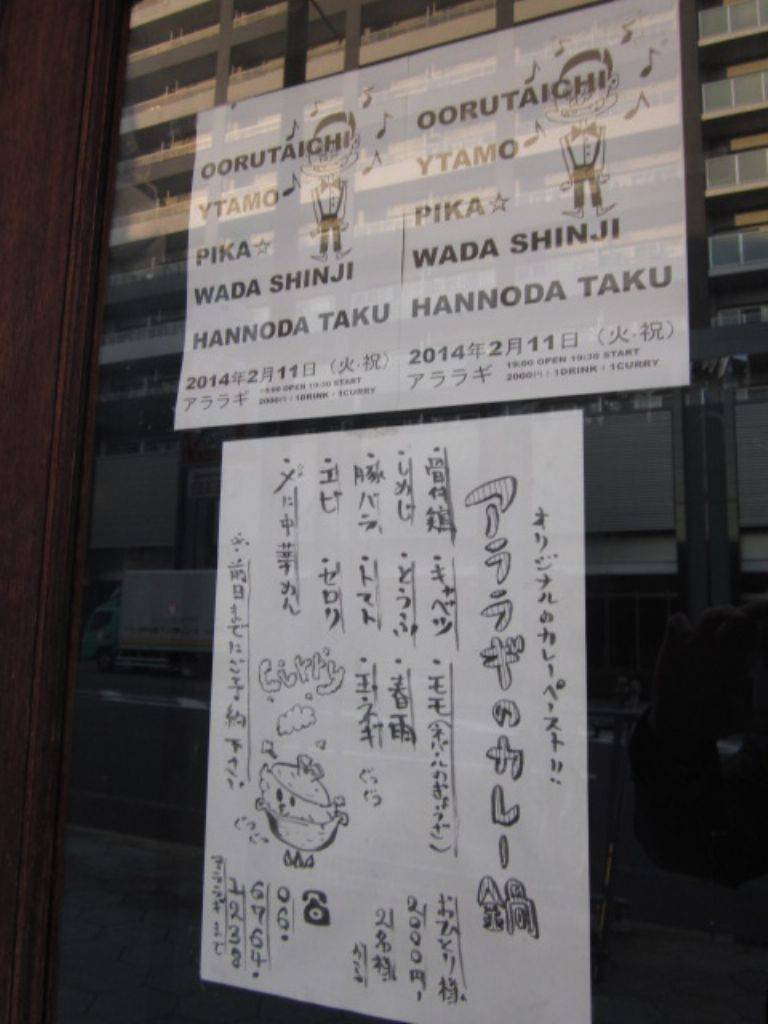 OORUTAICHI
YTAMO
PIKA☆
WADA SHINJI
HANNODA TAKU
2014年2月11日（火・祝）
アララギ
19:00 OPEN 19:30 START
2000円 / 1DRINK / 1CURRY
OORUTAICHI
YTAMO
PIKA☆
WADA SHINJI
HANNODA TAKU
2014年2月11日（火・祝）
アララギ
19:00 OPEN 19:30 START
2000円 / 1DRINK / 1CURRY
オリジナルのカレーペースト!!
アララギのカレー鍋
・骨付鶏 ・キャベツ ・モモ(ネパールのぎょうざ)
・しめじ ・とうふ ・春雨
・豚バラ ・トマト ・玉ネギ
・エビ ・セロリ
・〆に中華めん
Curry
おひとり様
2000円
2名様
※前日までにご予約下さい
☎
06.
6764.
1228
アララギまで